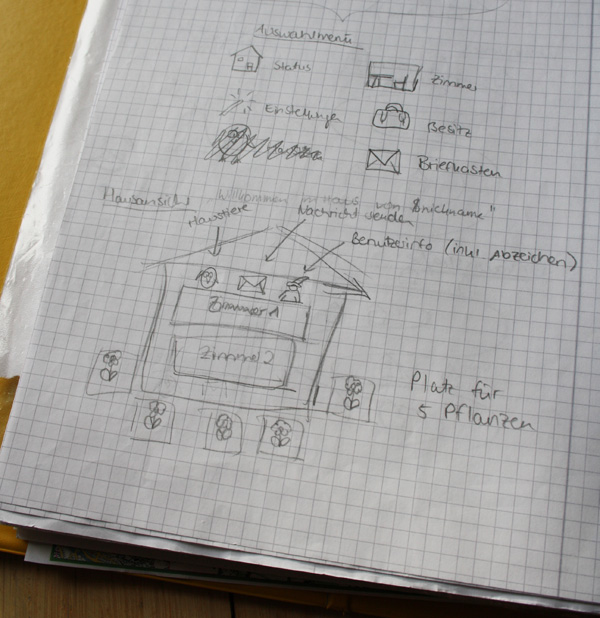 Auswahlmenü
Status
Zimmer
Einstellungen
Besitz
Briefkasten
Hausansicht "Willkommen im Haus von $nickname"
Haustiere
Nachricht senden
Benutzerinfo (inkl Abzeichen)
Zimmer 1
Zimmer 2
Platz für
5 Pflanzen